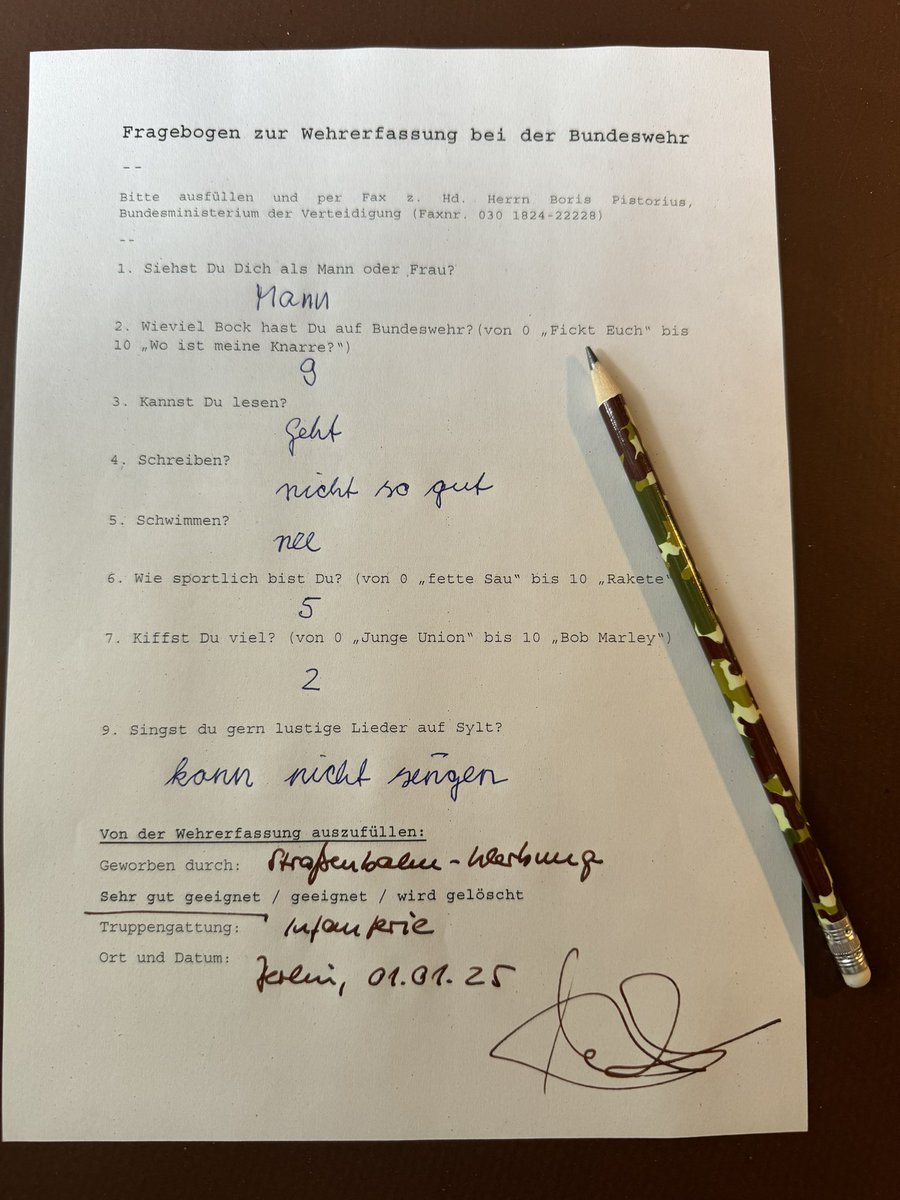 Fragebogen zur Wehrerfassung bei der Bundeswehr
--
Bitte ausfüllen und per Fax z. Hd. Herrn Boris Pistorius,
Bundesministerium der Verteidigung (Faxnr. 030 1824-22228)
--
1. Siehst Du Dich als Mann oder Frau?
Mann
2. Wieviel Bock hast Du auf Bundeswehr?(von 0 „Fickt Euch“ bis
10 „Wo ist meine Knarre?“)
9
3. Kannst Du lesen?
Geht
4. Schreiben?
nicht so gut
5. Schwimmen?
nee
6. Wie sportlich bist Du? (von 0 „fette Sau“ bis 10 „Rakete“
5
7. Kiffst Du viel? (von 0 „Junge Union“ bis 10 „Bob Marley“)
2
9. Singst du gern lustige Lieder auf Sylt?
kann nicht singen
Von der Wehrerfassung auszufüllen:
Geworben durch: Straßenbahn-Werbung
Sehr gut geeignet / geeignet / wird gelöscht
Truppengattung: Infanterie
Ort und Datum: Berlin, 01.01.25